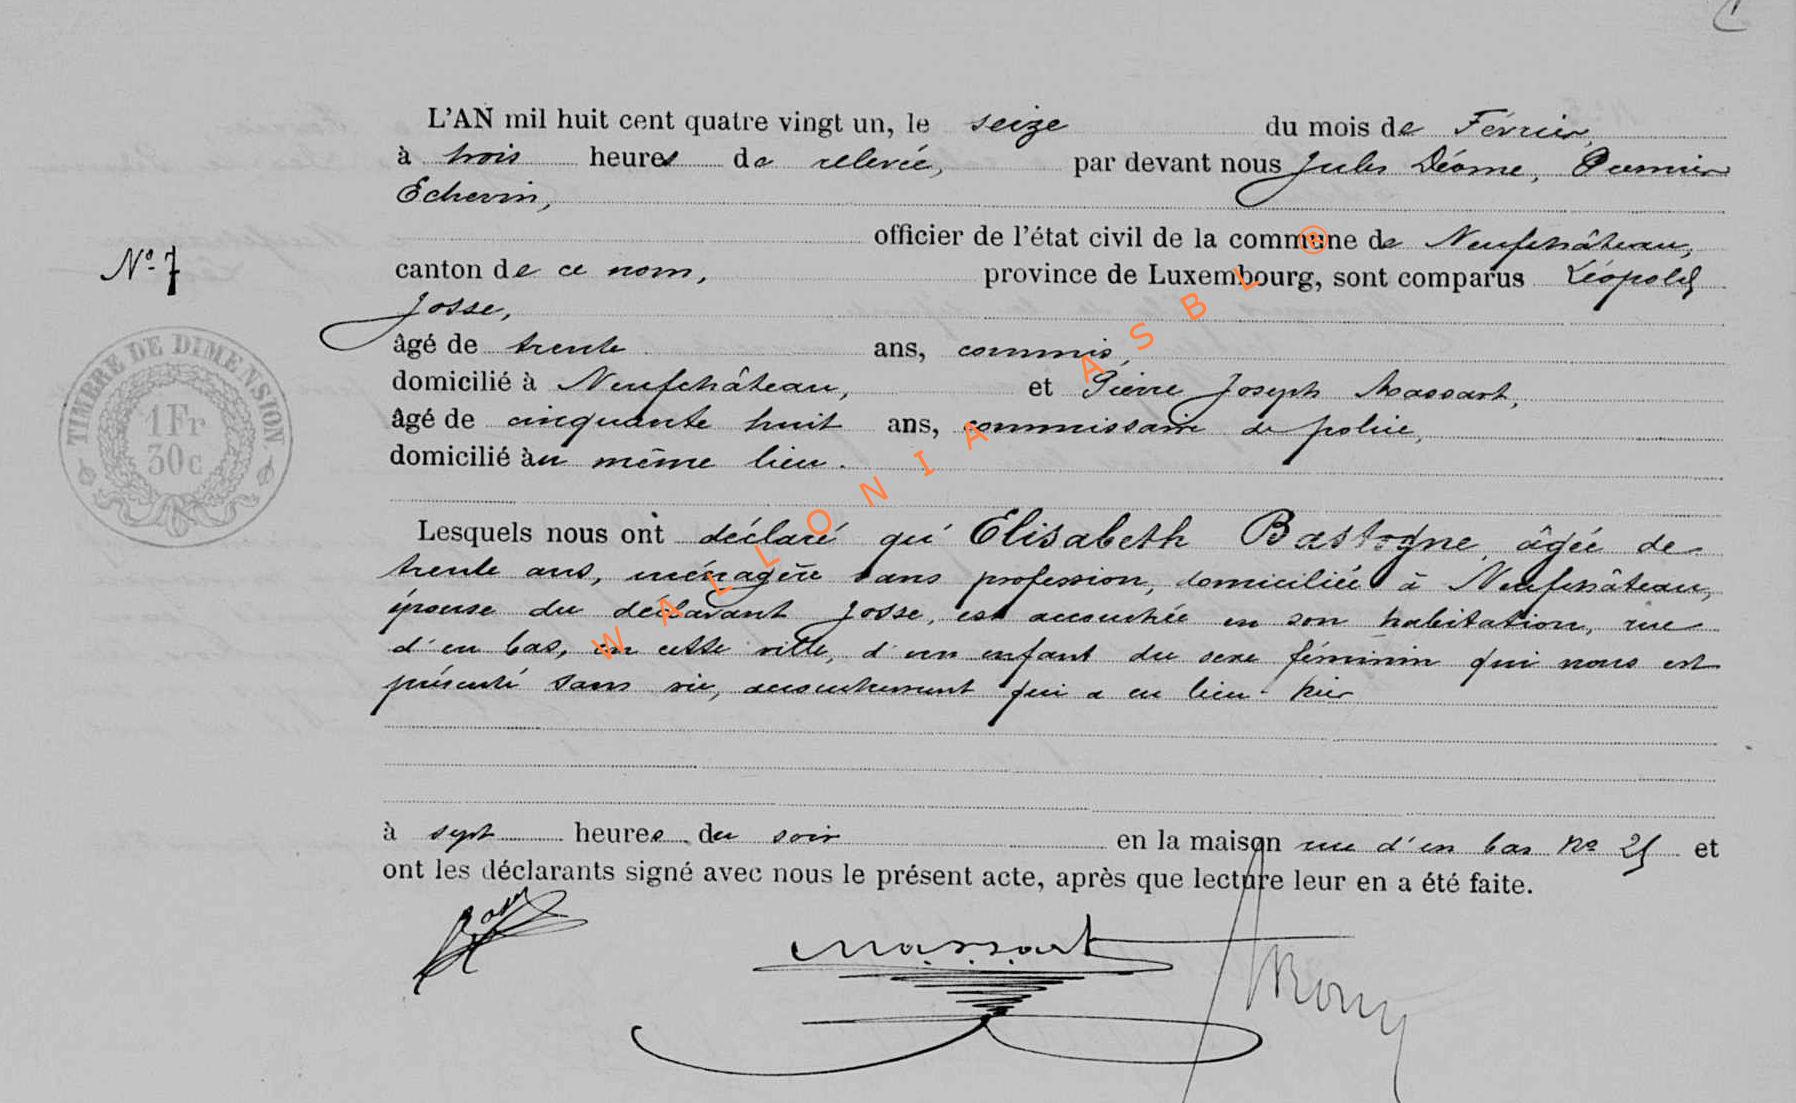 L'AN mil huit cent quatre vingt un, le seize du mois de Février,
à trois heures de relevée, par devant nous Jules Déome, Premier
Echevin,
officier de l'état civil de la commune de Neufchâteau,
N° 7
canton de ce nom, province de Luxembourg, sont comparus Léopold
Josse,
TIMBRE DE DIMENSION
1 Fr
30c
âgé de trente ans, commis,
domicilié à Neufchâteau, et Pierre Joseph Massart,
âgé de cinquante huit ans, commissaire de police,
domicilié au même lieu.
Lesquels nous ont déclaré qu' Elisabeth Bastogne, âgée de
trente ans, ménagère sans profession, domiciliée à Neufchâteau,
épouse du déclarant Josse, est accouchée en son habitation, rue
d'en bas, en cette ville, d'un enfant du sexe féminin qui nous est
présenté sans vie, accouchement qui a eu lieu hier
à sept heures du soir en la maison rue d'en bas No 25 et
ont les déclarants signé avec nous le présent acte, après que lecture leur en a été faite.
Massart
WALLONIA ASBL ®